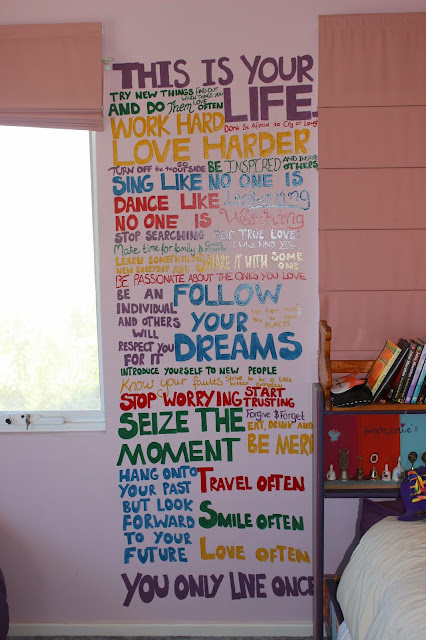 THIS IS YOUR
LIFE.
TRY NEW THINGS FIND OUT
WHICH THINGS YOU
AND DO Them LOVE OFTEN
WORK HARD
Dont Be Afraid to Cry or Laugh
LOVE HARDER
TURN OFF the tv GO OUTSIDE
BE INSPIRED AND INSPIRE OTHERS
SING LIKE NO ONE IS
DANCE LIKE Listening
NO ONE IS Watching
STOP SEARCHING FOR TRUE LOVE
LET LOVE FIND YOU
Make time for family &
LEARN SOMETHING
NEW EVERYDAY AND SHARE IT WITH SOME ONE
BE PASSIONATE ABOUT THE ONES YOU LOVE
BE AN
INDIVIDUAL
AND OTHERS
WILL
RESPECT YOU
FOR IT
FOLLOW
YOUR
DREAMS
PLACES
INTRODUCE YOURSELF TO NEW PEOPLE
Know your faults to be a little
STOP WORRYING START
TRUSTING
SEIZE THE
MOMENT
Forgive & Forget
EAT, DRINK AND
BE MERR
HANG ONTO
YOUR PAST
BUT LOOK
FORWARD
TO YOUR
FUTURE
TRAVEL OFTEN
SMILE OFTEN
LOVE OFTEN
YOU ONLY LIVE ONCE